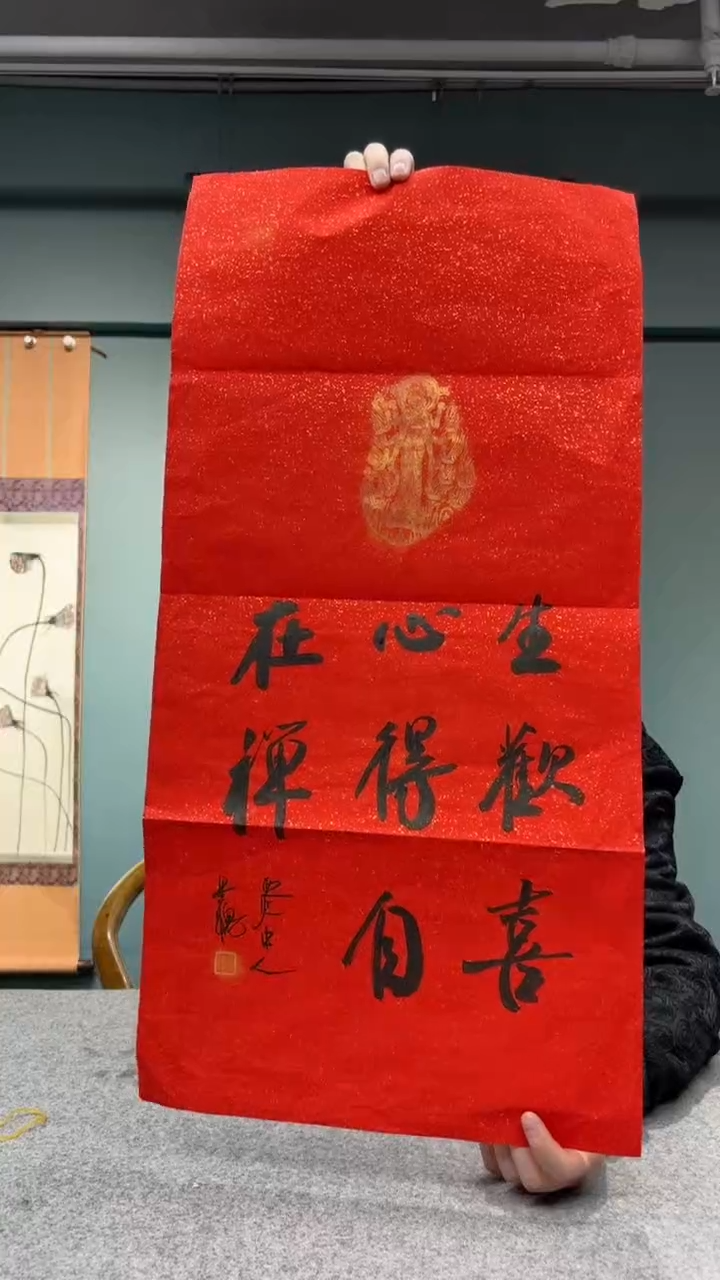 生歡喜
心得自
在禪